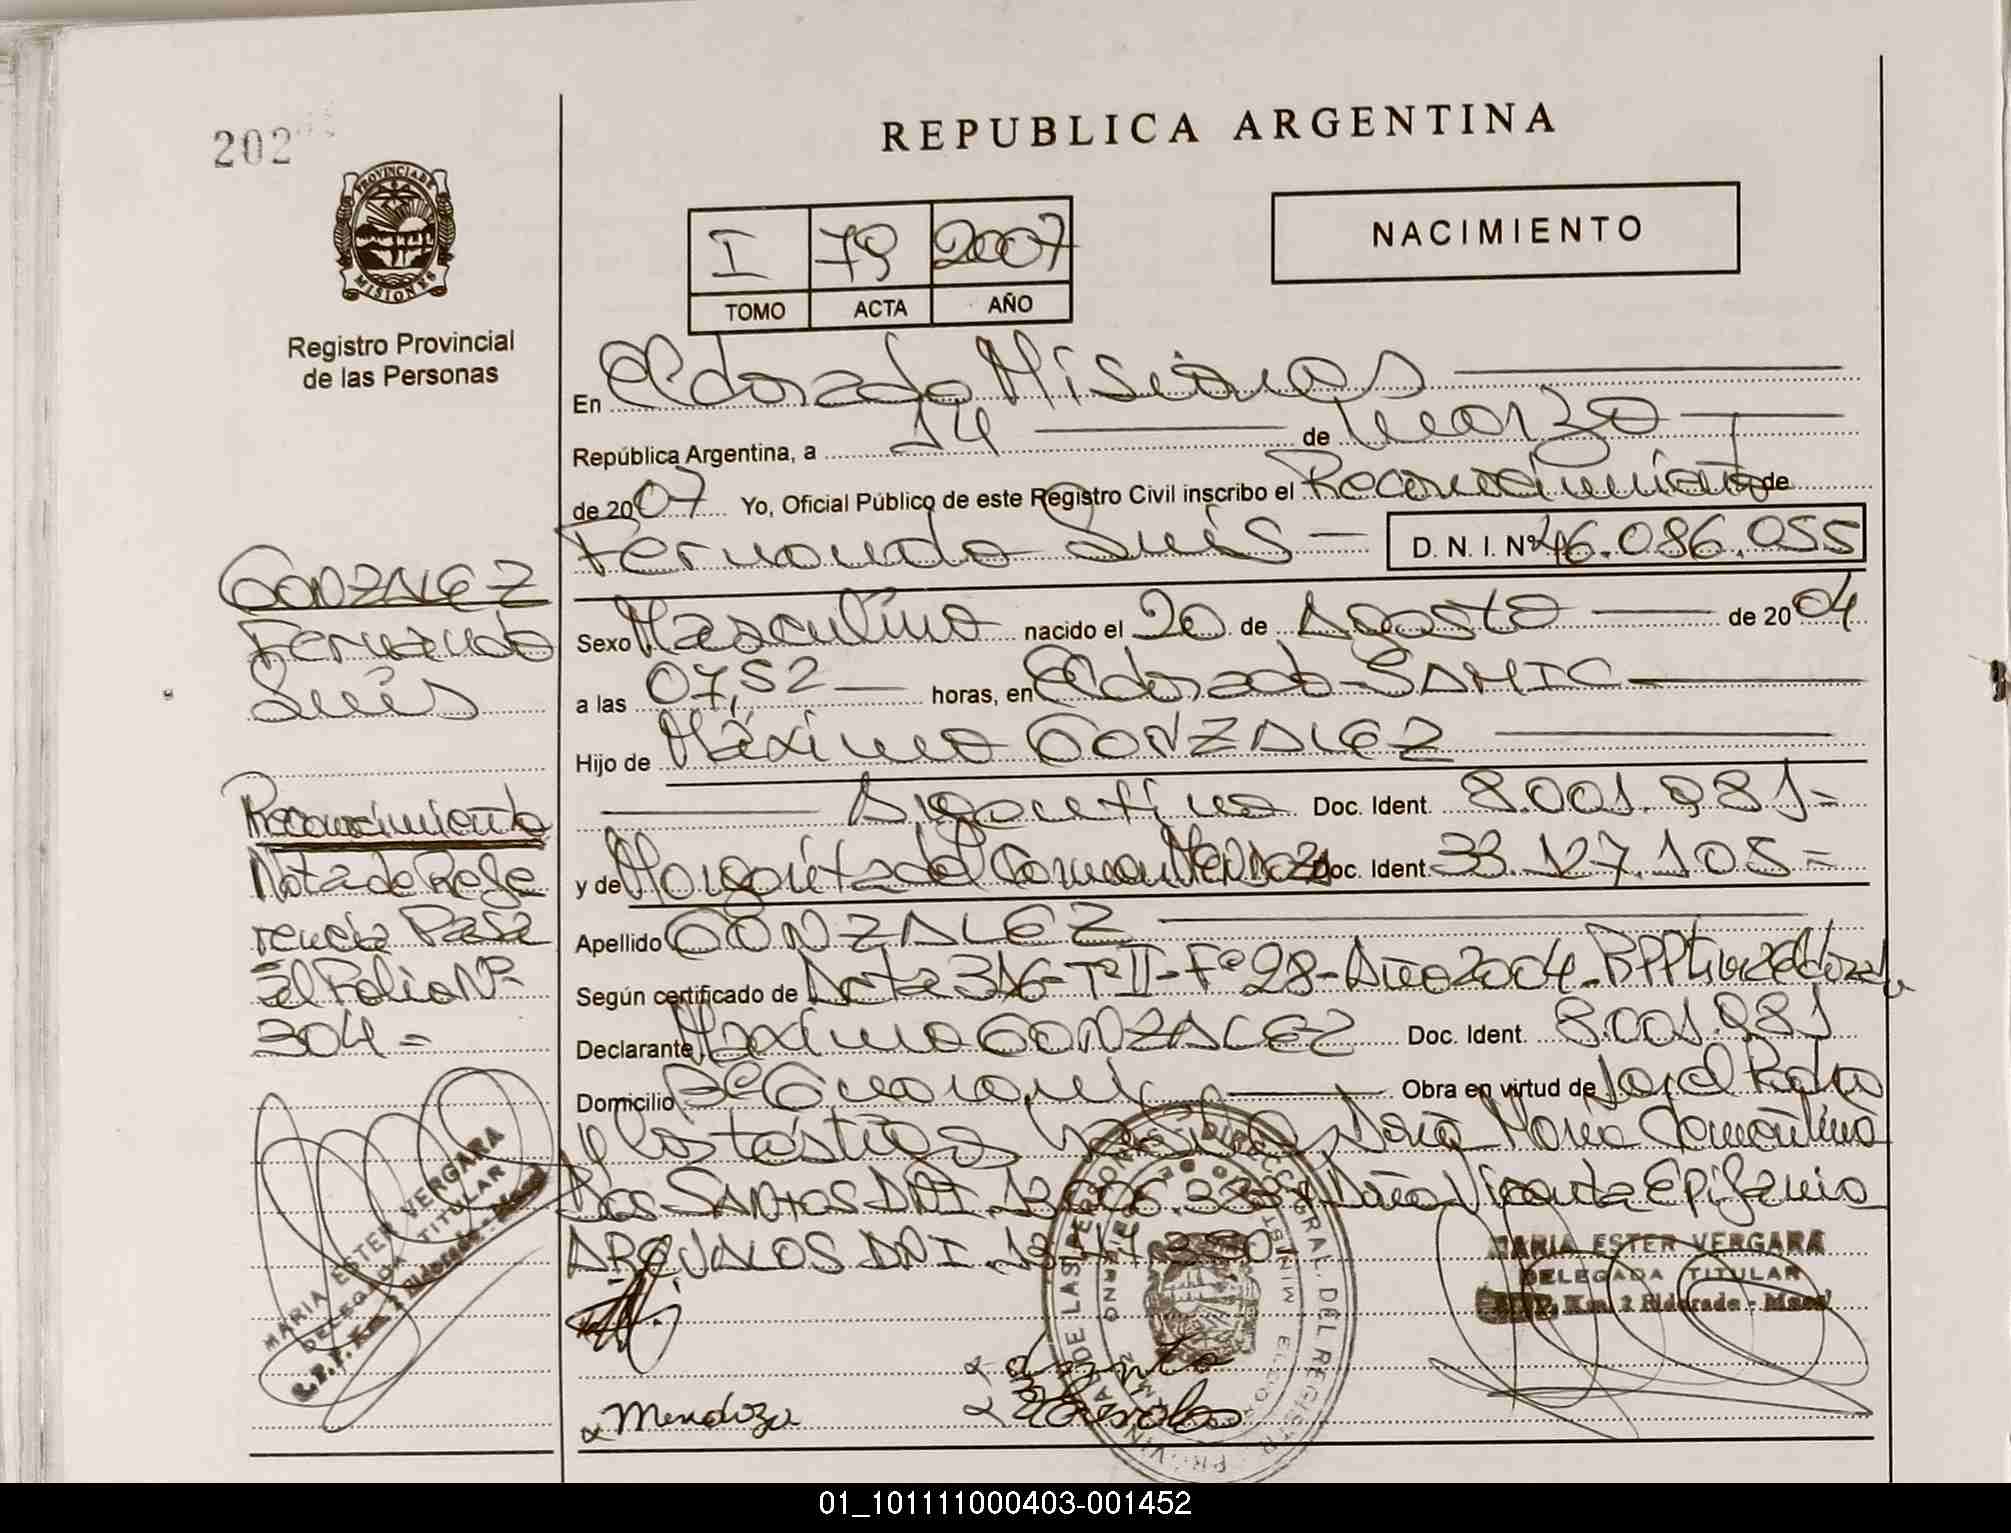 202
PROVINCIA DE
MISIONES
Registro Provincial
de las Personas
REPUBLICA ARGENTINA
I 79 2007
TOMO ACTA AÑO
NACIMIENTO
En Eldorado Misiones
República Argentina, a 14 de marzo
de 2007 Yo, Oficial Público de este Registro Civil inscribo el Reconocimiento de
Fernando Luis D. N. I. Nº 46.086.055
Sexo Masculino nacido el 20 de Agosto de 2004
a las 07,52 horas, en Eldorado SAMIC
Hijo de Máximo GONZALEZ
Argentino Doc. Ident. 8.001.981=
y de Margarita del Carmen Mendoza Doc. Ident. 33.127.105=
Apellido GONZALEZ
Según certificado de Acta 316-Tº II-Fº 28-Año 2004.
Declarante Máximo GONZALEZ Doc. Ident. 8.001.981
Domicilio Bº Guaraní Obra en virtud de
y los testigos Doña María
Dos SANTOS DNI Vicenta Epifania
AREVALOS DNI
GONZALEZ
Fernando
Luis
Reconocimiento
Nota de Refe
rencia Pasa
al Folio Nº
304=
MARIA ESTER VERGARA
DELEGADA TITULAR
R.P.P. Km. 2 Eldorado - Mnes
MARIA ESTER VERGARA
DELEGADA TITULAR
Km. 2 Eldorado - Mnes
Mendoza
01_101111000403-001452